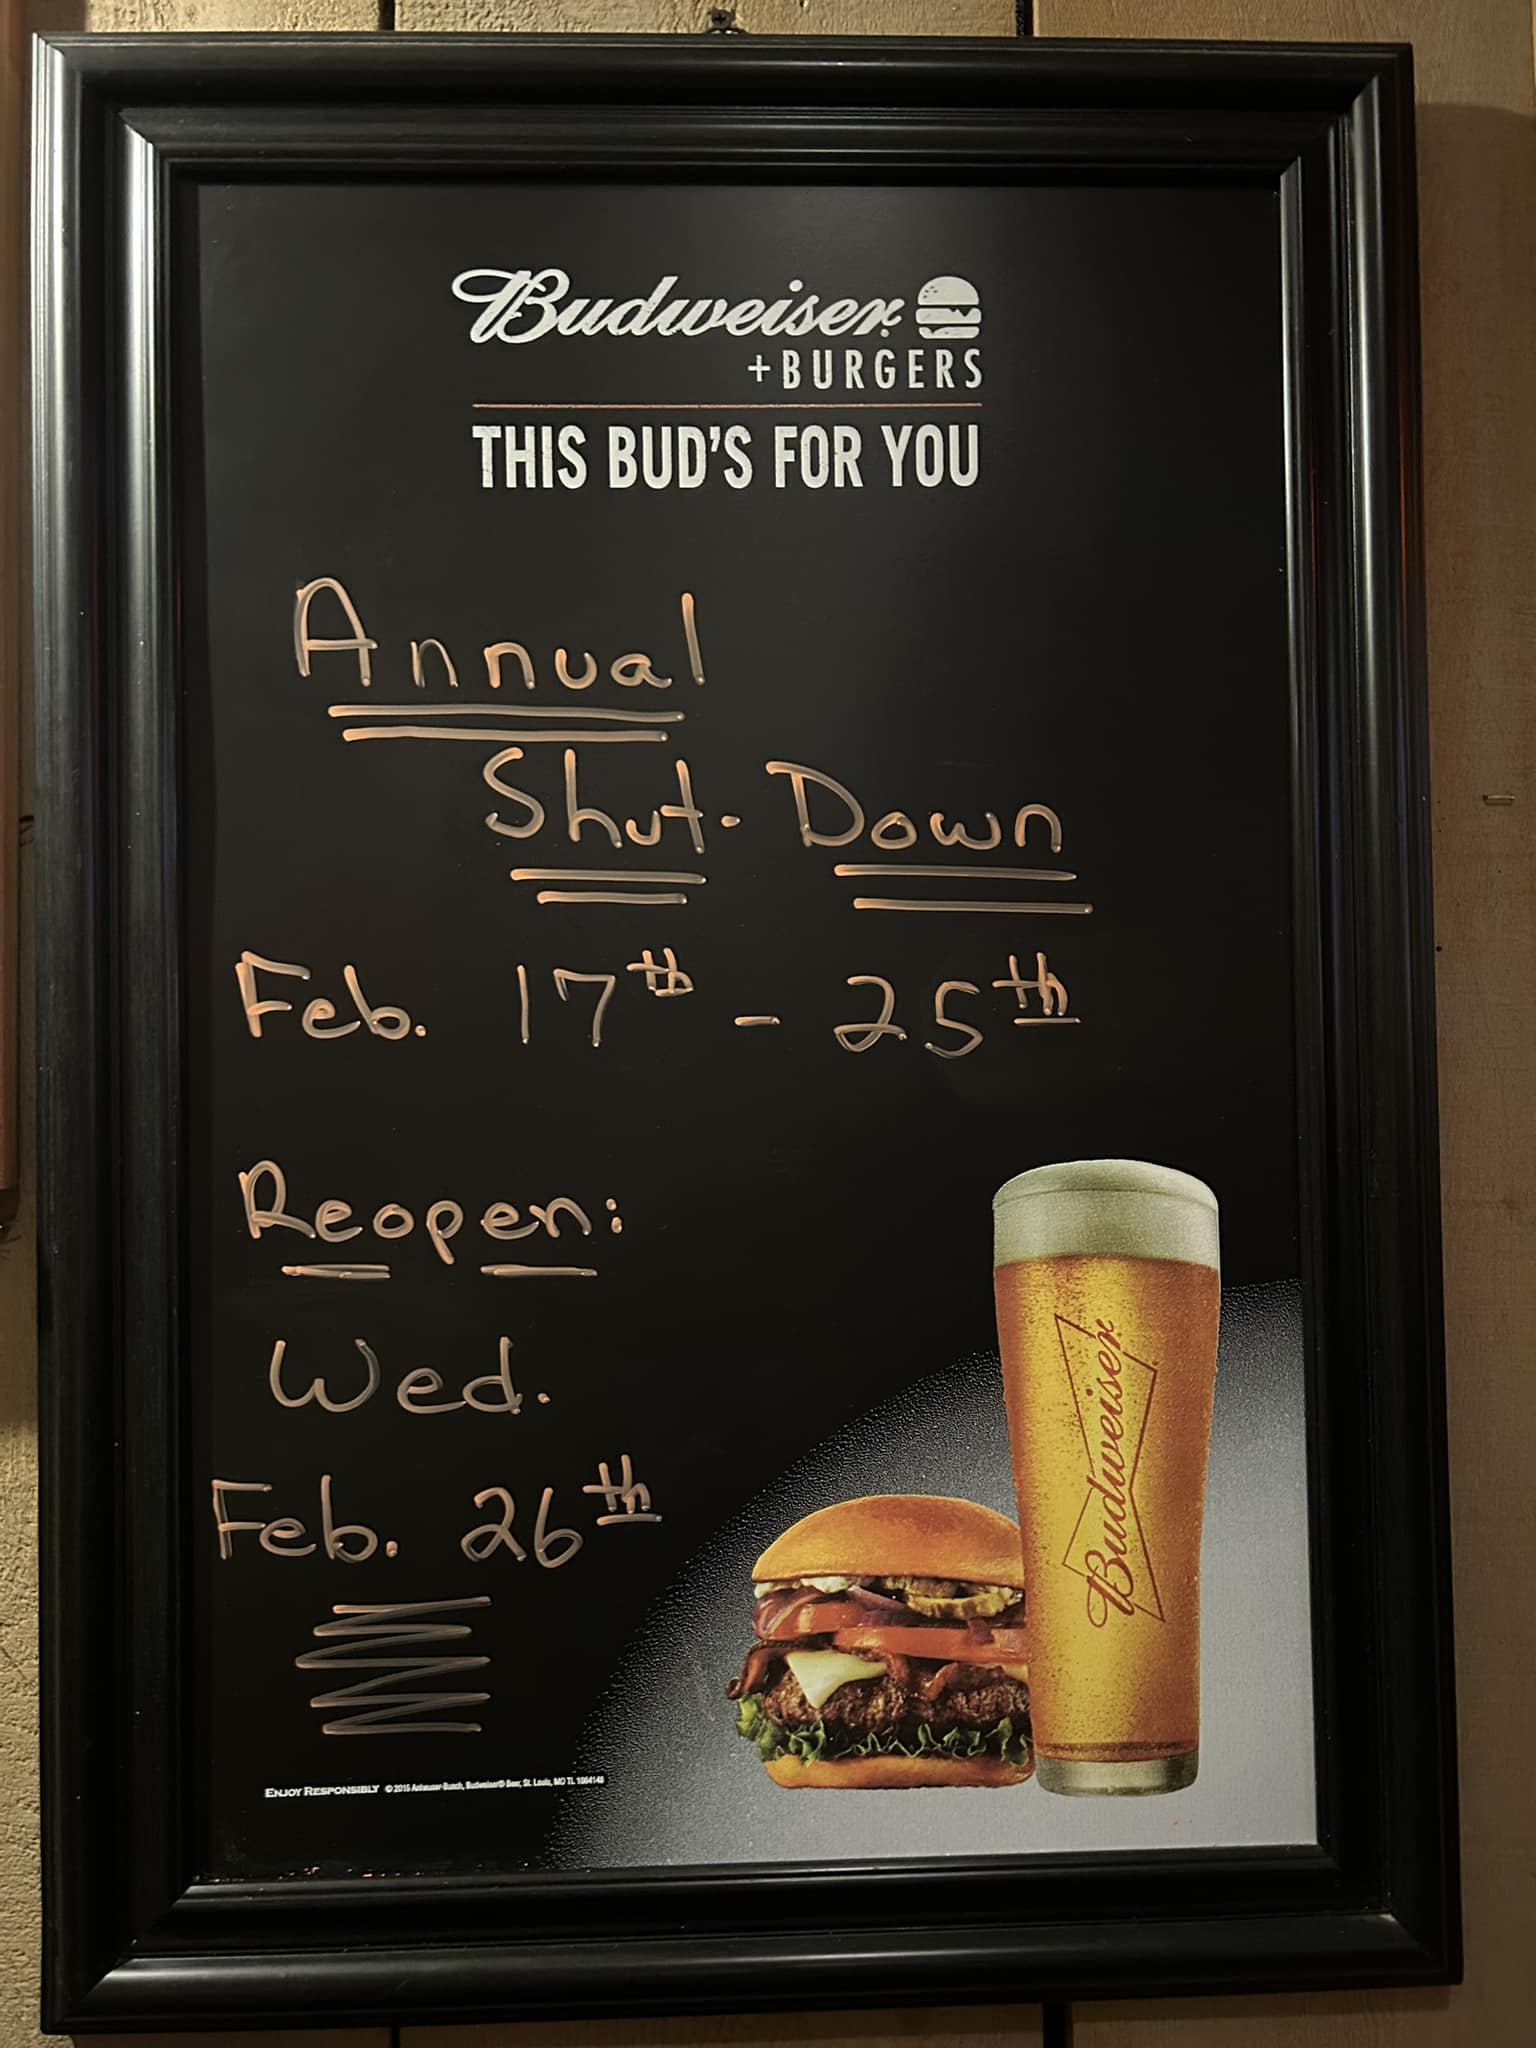 Budweiser
+BURGERS
THIS BUD'S FOR YOU
Annual
Shut-Down
Feb. 17th - 25th
Reopen:
Wed.
Feb. 26th
Budweiser
ENJOY RESPONSIBLY © 2015 Anheuser-Busch, Budweiser® Beer, St. Louis, MO TL 1064148